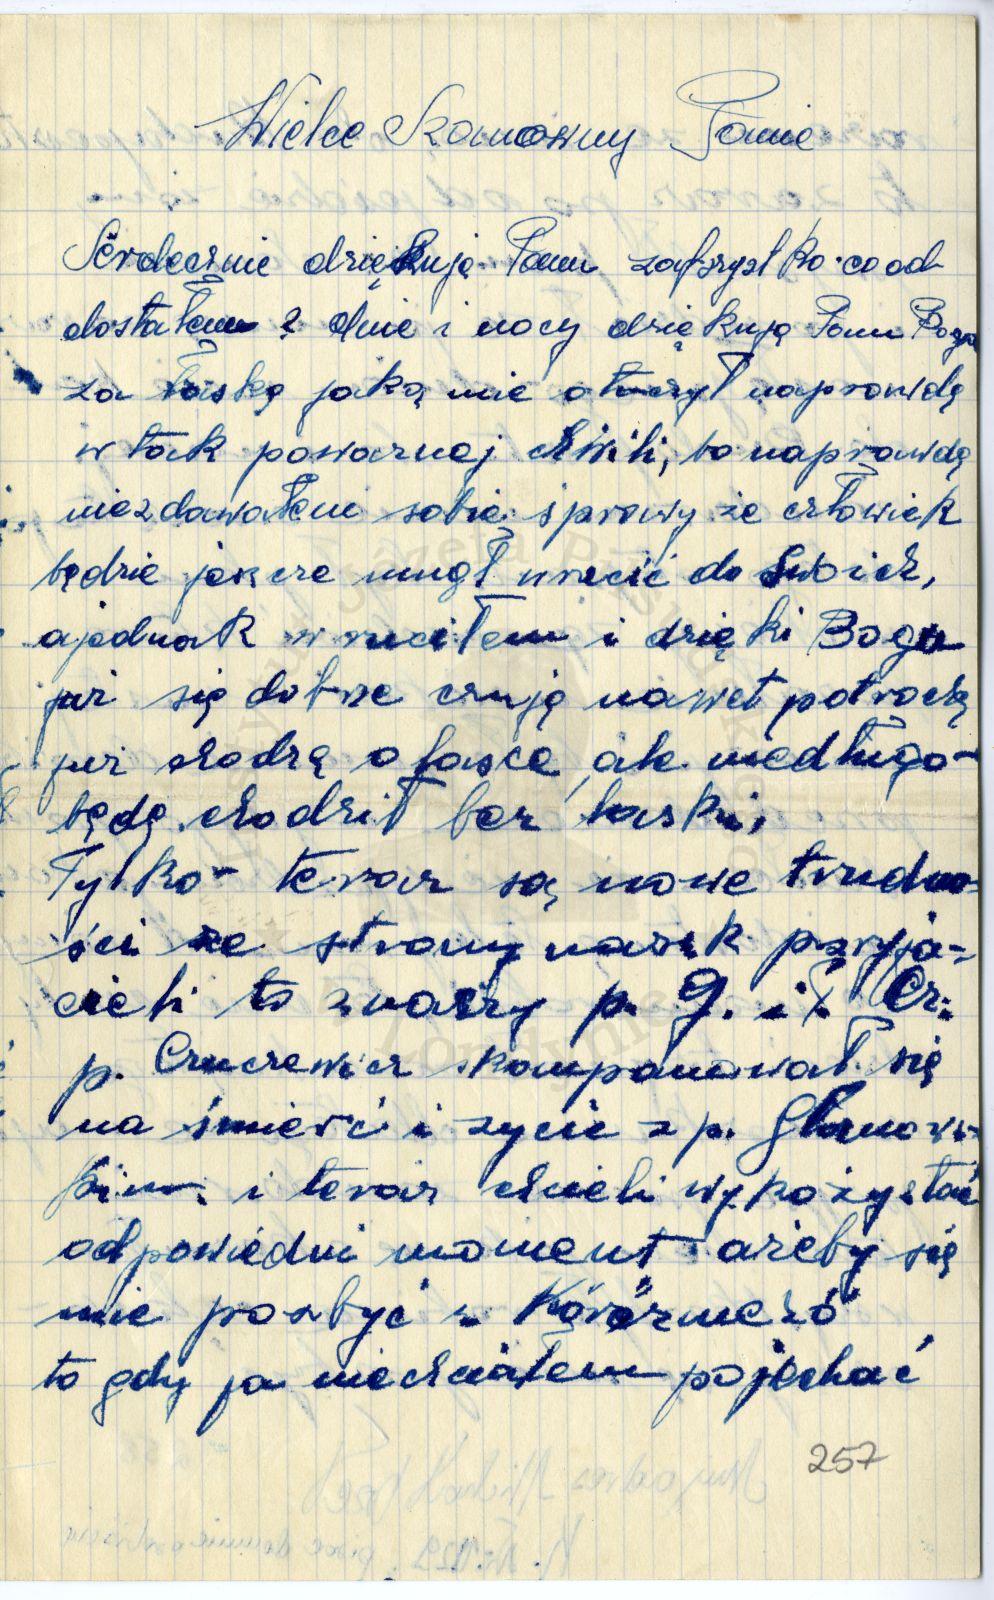 Wielce Szanowny Panie
Serdecznie dziękuję Panu zafszystko co od
dostałem w dnie i nocy dziękują Panu Boga
za łaskę jaką mie otoczył naprawdę
w tak poważnej chwili, bo naprawdę
niezdawałem sobie sprawy że człowiek
będzie jeszcze mugł wrucić do
ajednak wruciłem i dzięki Bogu
już się dobrze czują nawet potrochę
już chodzą o lasce ale niedługo
będę chodził bez laski,
Tylko teraz są nowe trudno-
ści ze strony naszych przyja-
cieli to znaczy p. G. i Cz.
p. Czuczewicz skompanował się
na śmierć i życie z p. Glanows-
kim. i teraz chcieli wykożystać
odpowiedni moment ażeby się
mie pozbyć z Körözmezö
to gdy ja niechciałem pojechać
257